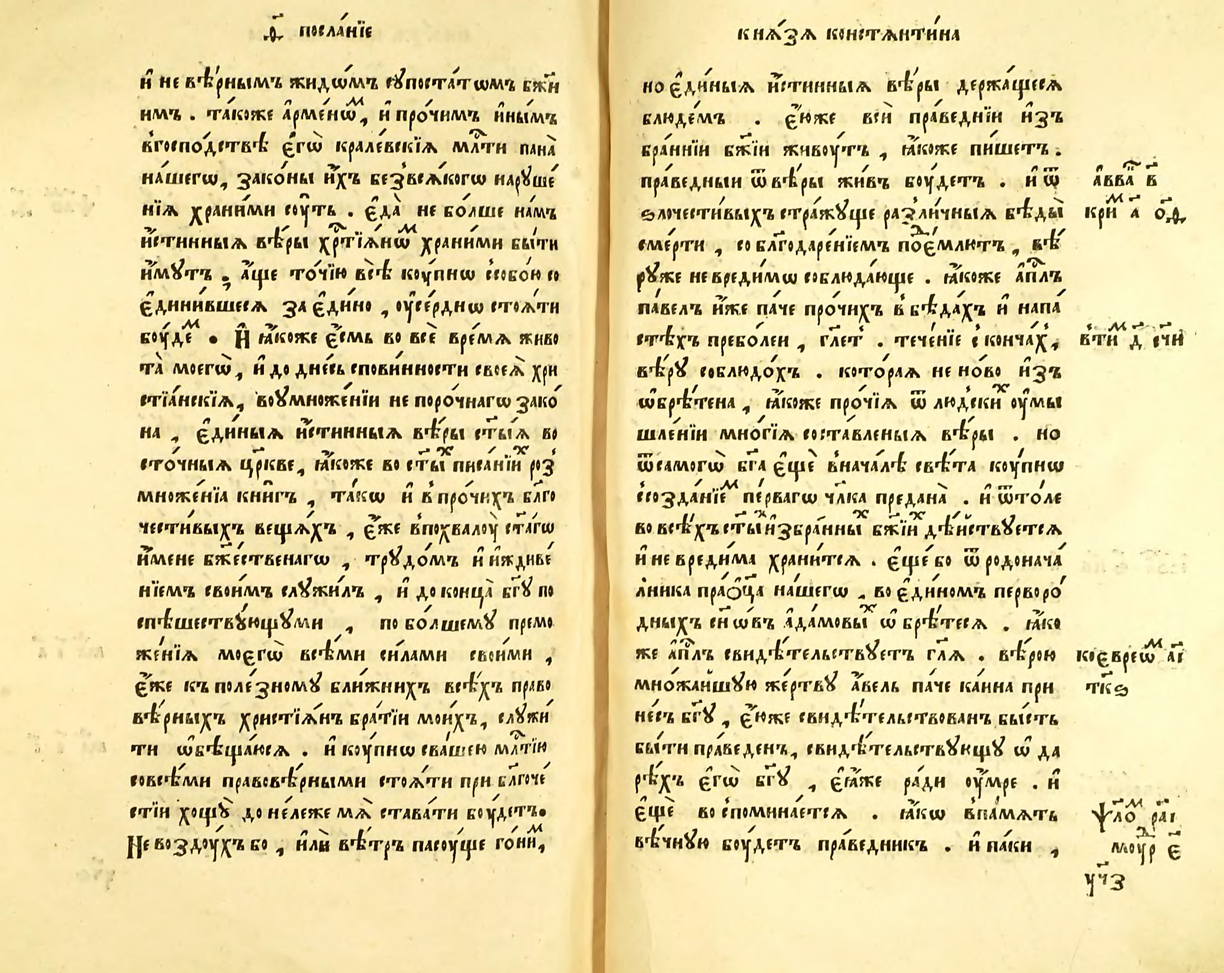 а҃ посла́нїе
и҆ не вѣ́рнымъ жидѡ́мъ сꙋпоста́тѡмъ бж҃їи
имъ . та́коже а҆рме́нѡⷨ, и҆ про́чимъ и҆ны́мъ
вгоспо́дствѣ є҆гѡ̀ крале́вскїѧ млⷭ҇ти пана̀
на́шегѡ, зако́ны и҆́хъ безвсѧ́когѡ нарꙋше́
нїѧ храни́ми сꙋ́ть . є҆да̀ не бо́лше на́мъ
и҆́стинныѧ вѣ́ры хрⷭ҇тїѧ́нѡⷨ храни́ми бы́ти
и҆́мꙋтъ ; а҆́ще то́чїю всѣ̀ кꙋ́пнѡ ссобо́ю со
є҆дини́вшесѧ за є҆ди́но , ᲂу҆се́рднѡ стоѧ́ти
бꙋ́деⷨ . И҆ ꙗ҆́коже є҆́смь во всѐ вре́мѧ живо
та̀ моегѡ̀, и҆ до дне́сь сповинности своеѧ̀ хри
стїа́нскїѧ, вᲂумноже́нїи не поро́чнагѡ зако́
на , є҆ди́ныѧ и҆́стинныѧ вѣ́ры ст҃ы́ѧ во
сто́чныѧ цр҃кве, ꙗ҆́коже во ст҃ы́ⷯ писа́нїиⷯ роз̾
множе́нїа кни́гъ , та́кѡ и҆ впро́чихъ бл҃го
чести́выхъ веща́хъ , є҆́же впохвалꙋ̀ ст҃а́гѡ
и҆́мене бж҃е́ственагѡ , трꙋдо́мъ и҆ и҆ждиве́
нїемъ свои́мъ слꙋжи́лъ , и҆ до конца̀ бг҃ꙋ по
спѣ́шествꙋющꙋми , по бо́лшемꙋ премо
же́нїѧ моегѡ̀ всѣ́ми си́лами свои́ми ,
є҆́же къ поле́зномꙋ бли́жнихъ всѣ́хъ право
вѣ́рныхъ христїѧ́нъ бра́тїи мои́хъ, слꙋжи́
ти ѡ҆бѣща́юсѧ . и҆ кꙋ́пнѡ сва́шею млⷭ҇тїю
совсѣ́ми правовѣ́рными стоѧ́ти при бл҃гоче́
стїи хощꙋ̀ до не́леже мѧ̀ става́ти бꙋ́детъ.
Не воздꙋ́хъ бо , и҆лѝ вѣ́тръ пасꙋ́ще го́ниⷨ,
кнѧ́зѧ константи́на
но є҆ди́ныѧ и҆́стинныѧ вѣ́ры держа́щесѧ
блюде́мъ . є҆́юже всѝ пра́веднїи и҆зъ
бра́ннїи бж҃їи живꙋ́тъ , ꙗ҆́коже пи́шетъ .
пра́ведныи ѿ вѣ́ры жи́въ бꙋ́детъ . и҆ ѿ
ѕлочести́выхъ стра́жꙋще разли́чныѧ бѣды̀
сме́рти , со бл҃годаре́нїемъ по̾е́млютъ , вѣ́
рꙋже не вреди́мѡ соблюда́юще . ꙗ҆́коже а҆пⷭ҇лъ
па́велъ и҆́же па́че про́чихъ в бѣда́хъ и҆ напа́
стѣхъ преболе́и , гл҃етъ . тече́нїе сконча́хъ,
вѣ́рꙋ соблюдо́хъ . кото́раѧ не но́во и҆зъ
ѡ҆брѣ́тена , ꙗ҆́коже про́чїѧ ѿ людски́ⷯ ᲂу҆мы
шле́нїи мно́гїѧ соста́вленыѧ вѣ́ры . но
ѿсамогѡ̀ бг҃а є҆щѐ внача́лѣ свѣ́та кꙋ́пнѡ
ссозда́нїеⷨ пе́рвагѡ чл҃ка предана̀ . и҆ ѿто́ле
во всѣ́хъ ст҃ы́ⷯ и҆збра́нныⷯ бж҃їиⷯ дѣ́йствꙋетсѧ
и҆ не вреди́ма храни́тсѧ . є҆ще́ бо ѿ родонача́
лника прао҆ц҃а на́шегѡ , во є҆ди́номъ перворо́
дныхъ сн҃ѡ́въ а҆да́мовыⷯ ѡ҆ брѣ́тесѧ . ꙗ҆́ко
же а҆пⷭ҇лъ свидѣ́телствꙋетъ гл҃ѧ . вѣ́рою
мно́жаишꙋю же́ртвꙋ а҆́вель па́че ка́ина при
не́съ бг҃ꙋ , є҆́юже свидѣ́телствованъ бы́сть
бы́ти пра́веденъ, свидѣ́телствꙋющꙋ ѡ҆ да
рѣ́хъ є҆гѡ̀ бг҃ꙋ , є҆ѧ́же ра́ди ᲂу҆́мре . и҆
є҆щѐ во спомина́етсѧ . ꙗ҆́кѡ впа́мѧть
вѣ́чнꙋю бꙋ́детъ пра́ведник . и҆ па́ки ,
а҆вва̀ в҃
а҃
вти́ⷨ д҃
коевреѡⷨ а҃і